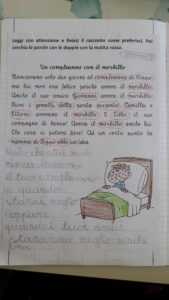 Leggi con attenzione e finisci il racconto come preferisci. Poi
cerchia le parole con le doppie con la matita rossa.
Un compleanno con il morbillo
Mancavano solo due giorni al compleanno di Pippo,
ma lui non era felice perché aveva il morbillo.
Anche il suo amico Giovanni aveva il morbillo.
Pure i gemelli della porta accanto, Camilla e
Ettore, avevano il morbillo. E Tillo, il suo
compagno di banco? Aveva il morbillo anche lui.
Che cosa si poteva fare? Ad un certo punto la
mamma di Pippo ebbe un'idea.
che
rimandiamo
il tuo compleanno
a quando
starai meglio
oppure
quando i tuoi amici
staranno meglio anche